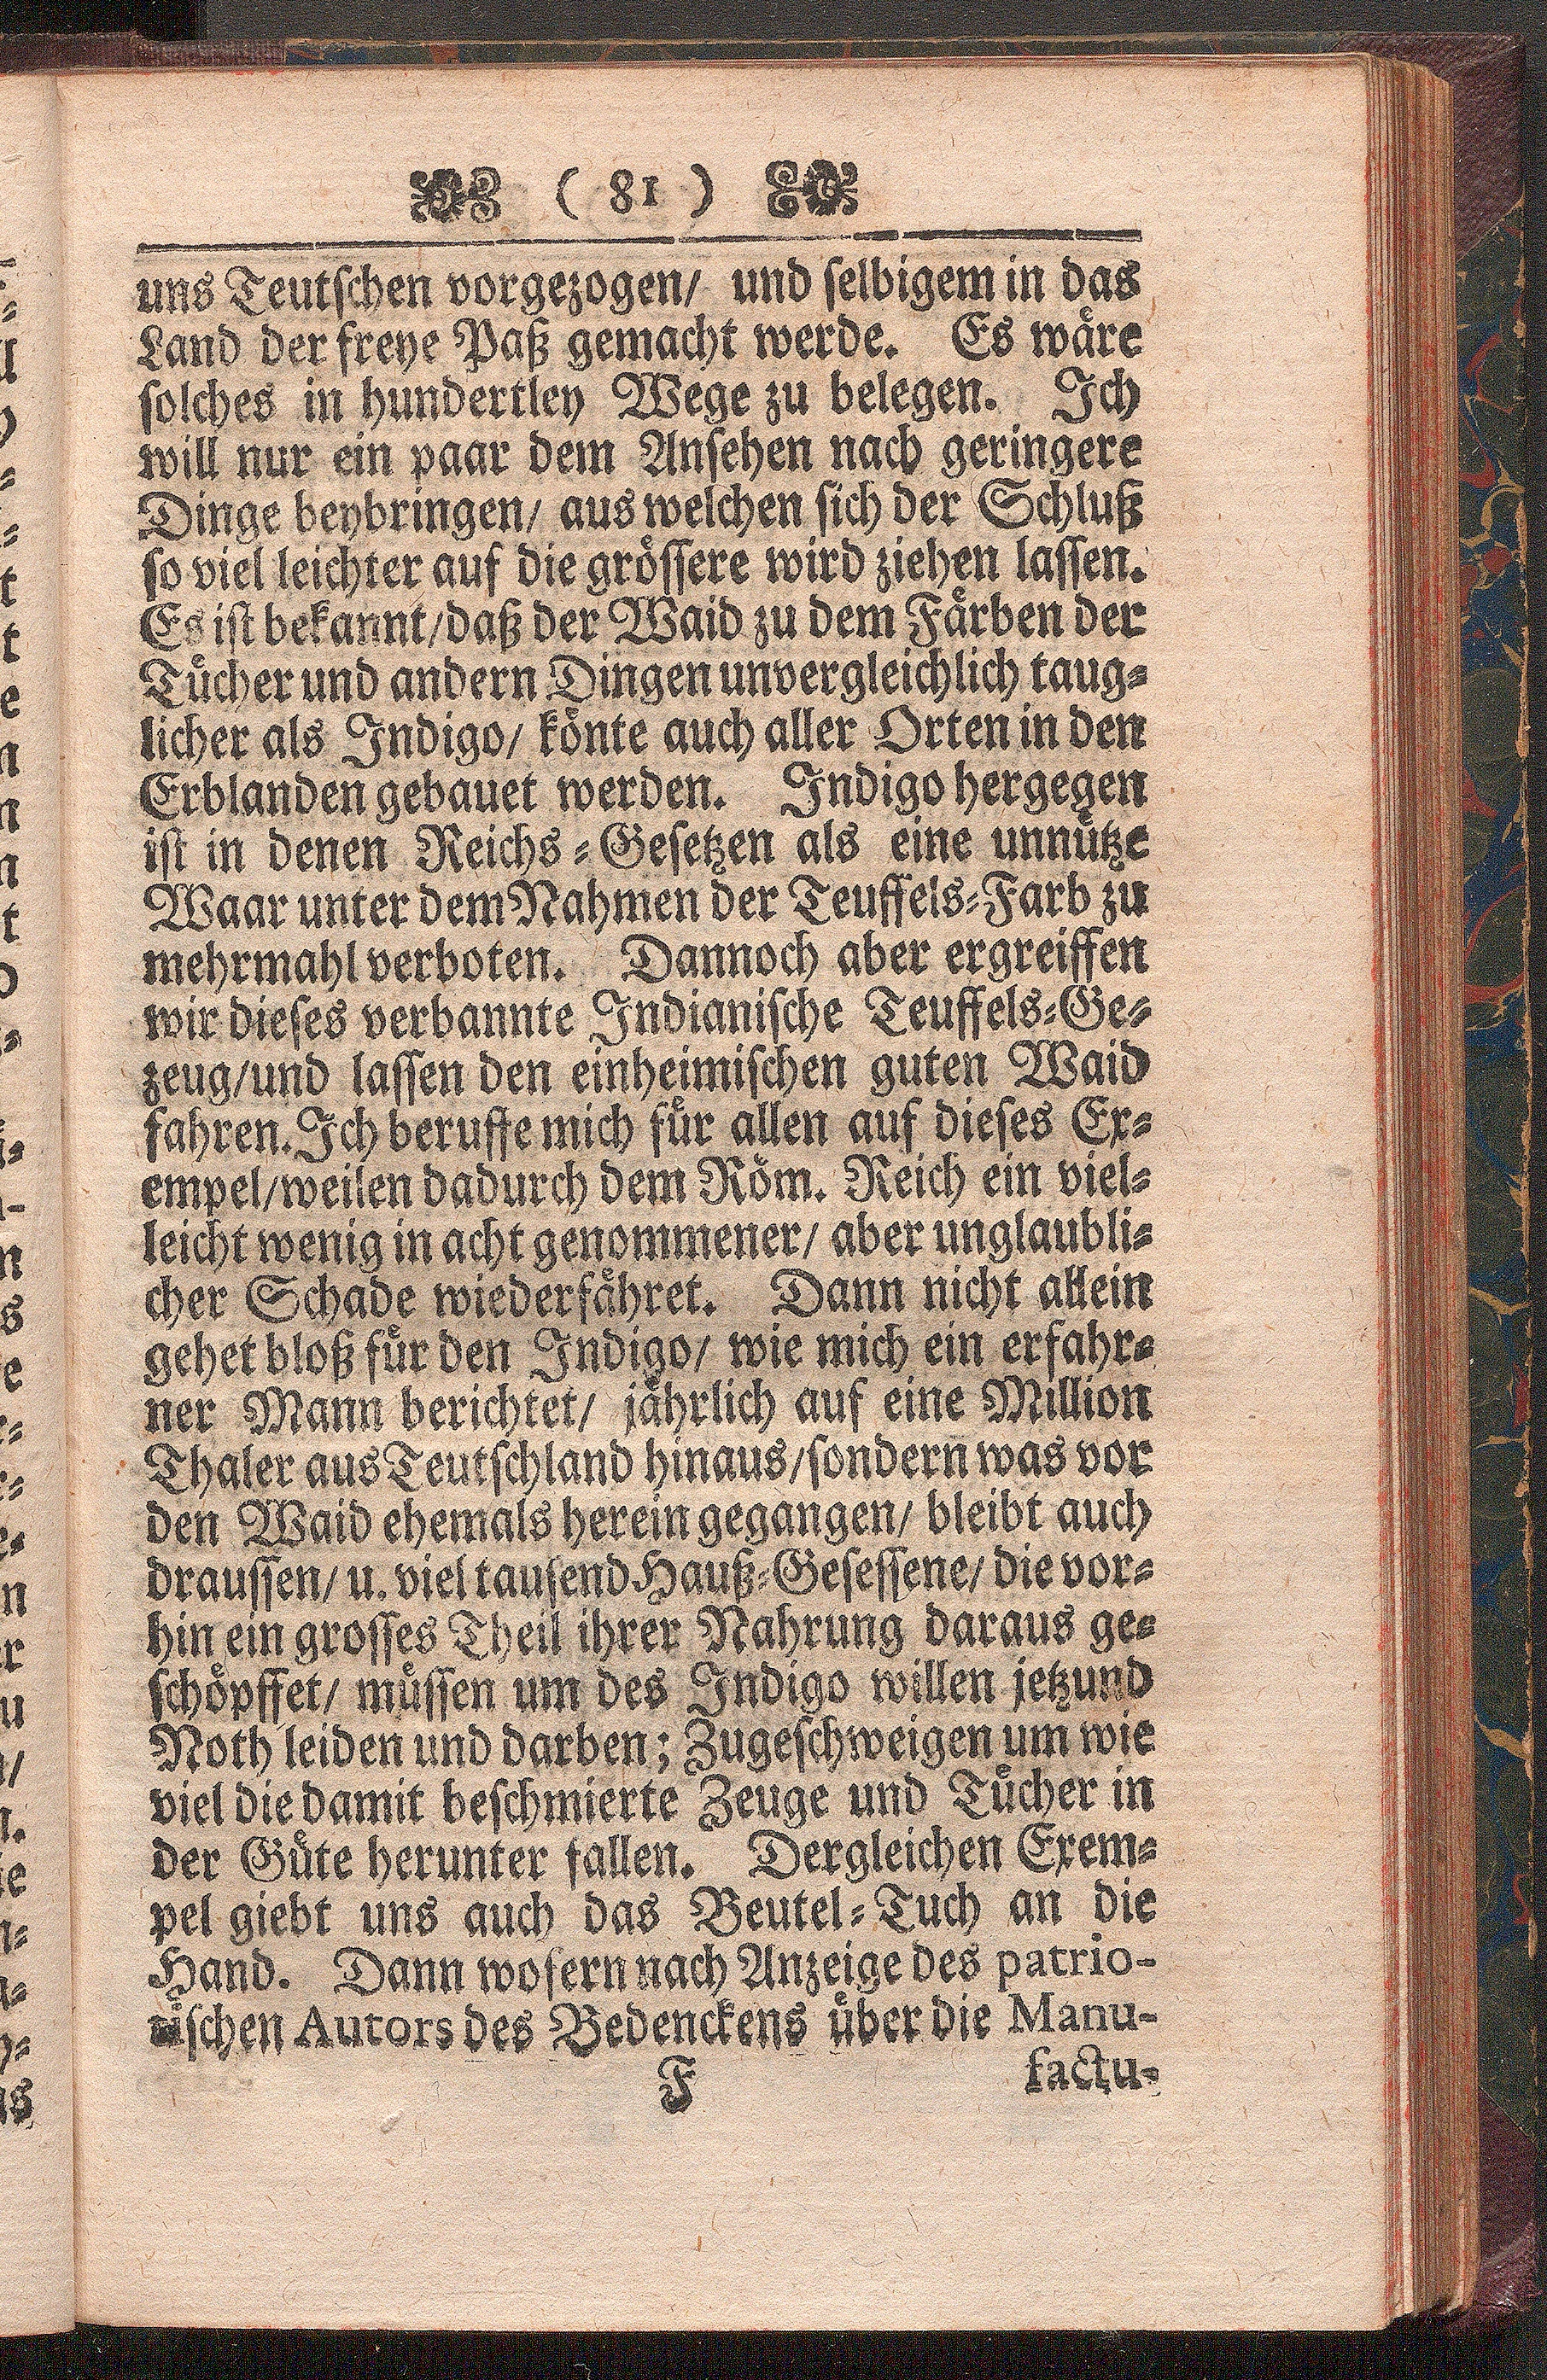 ( 81 )
uns Teutschen vorgezogen/ und selbigem in das
Land der freye Paß gemacht werde. Es wäre
solches in hundertley Wege zu belegen. Ich
will nur ein paar dem Ansehen nach geringere
Dinge beybringen/ aus welchen sich der Schluß
so viel leichter auf die grössere wird ziehen lassen.
Es ist bekannt/daß der Waid zu dem Färben der
Tücher und andern Dingen unvergleichlich taug-
licher als Indigo/ könte auch aller Orten in den
Erblanden gebauet werden. Indigo hergegen
ist in denen Reichs-Gesetzen als eine unnütze
Waar unter dem Nahmen der Teuffels-Farb zu
mehrmahl verboten. Dannoch aber ergreiffen
wir dieses verbannte Indianische Teuffels-Ge-
zeug/und lassen den einheimischen guten Waid
fahren. Ich beruffe mich für allen auf dieses Ex-
empel/weilen dadurch dem Röm. Reich ein viel-
leicht wenig in acht genommener/ aber unglaubli-
cher Schade wiederfähret. Dann nicht allein
gehet bloß für den Indigo/ wie mich ein erfahr-
ner Mann berichtet/ jährlich auf eine Million
Thaler aus Teutschland hinaus/sondern was vor
den Waid ehemals herein gegangen/ bleibt auch
draussen/ u. viel tausend Hauß-Gesessene/ die vor-
hin ein grosses Theil ihrer Nahrung daraus ge-
schöpffet/ müssen um des Indigo willen jetzund
Noth leiden und darben; Zugeschweigen um wie
viel die damit beschmierte Zeuge und Tücher in
der Güte herunter fallen. Dergleichen Exem-
pel giebt uns auch das Beutel-Tuch an die
Hand. Dann wofern nach Anzeige des patrio-
tischen Autors des Bedenckens über die Manu-
F factu-